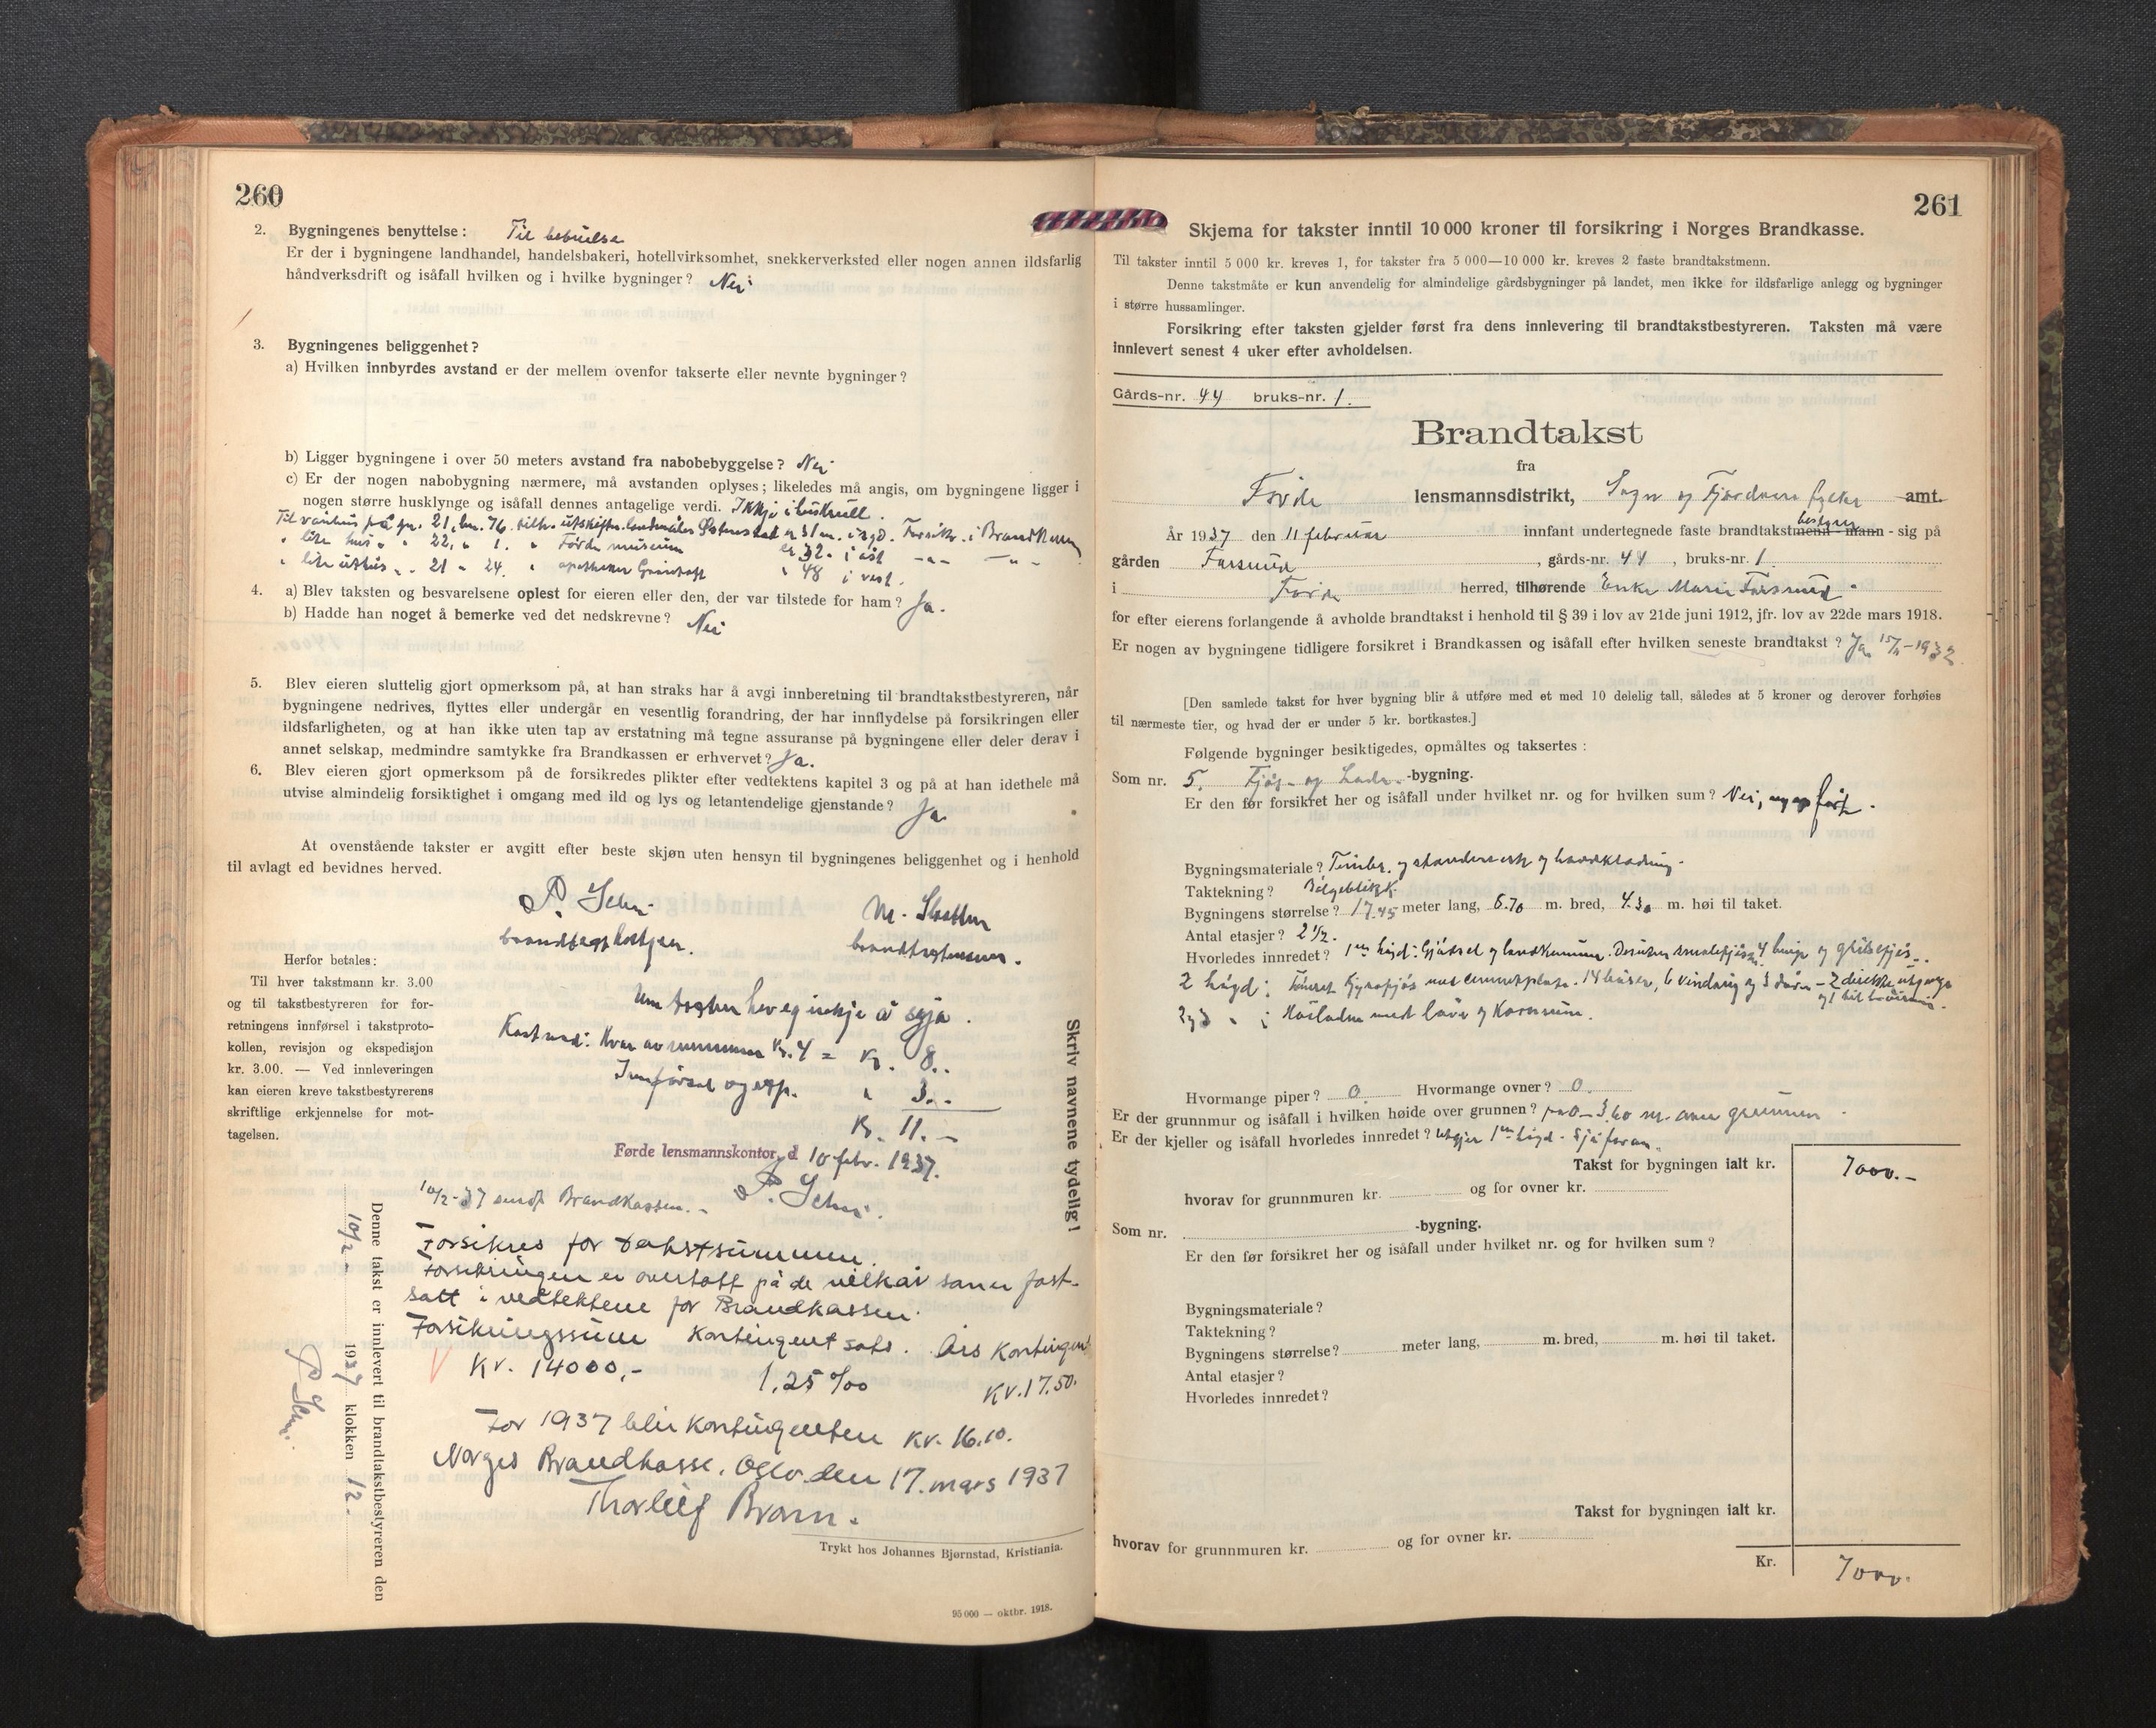 260
2. Bygningenes benyttelse: Til bebuelse
Er der i bygningene landhandel, handelsbakeri, hotellvirksomhet, snekkerverksted eller nogen annen ildsfarlig
håndverksdrift og isåfall hvilken og i hvilke bygninger? Nei
3. Bygningenes beliggenhet?
a) Hvilken innbyrdes avstand er der mellem ovenfor takserte eller nevnte bygninger?
b) Ligger bygningene i over 50 meters avstand fra nabobebyggelse? Nei
c) Er der nogen nabobygning nærmere, må avstanden oplyses; likeledes må angis, om bygningene ligger i
nogen større husklynge og isåfall dennes antagelige verdi. Ikkje i
Til på gr. 21, br. 76. er 31 m. i Forsikr. i Brandkassen
" lite hus " " 22, " 1. " Førde museum er 32 - i øst -"- -"-
" lite uthus " " 21 " 24. " apotheker " 48 i vest.
4. a) Blev taksten og besvarelsene oplest for eieren eller den, der var tilstede for ham? Ja.
b) Hadde han noget å bemerke ved det nedskrevne? Nei
5. Blev eieren sluttelig gjort opmerksom på, at han straks har å avgi innberetning til brandtakstbestyreren, når
bygningene nedrives, flyttes eller undergår en vesentlig forandring, der har innflydelse på forsikringen eller
ildsfarligheten, og at han ikke uten tap av erstatning må tegne assuranse på bygningene eller deler derav i
annet selskap, medmindre samtykke fra Brandkassen er erhvervet? Ja.
6. Blev eieren gjort opmerksom på de forsikredes plikter efter vedtektens kapitel 3 og på at han idethele må
utvise almindelig forsiktighet i omgang med ild og lys og letantendelige gjenstande? Ja
At ovenstående takster er avgitt efter beste skjøn uten hensyn til bygningenes beliggenhet og i henhold
til avlagt ed bevidnes herved.
Herfor betales:
Til hver takstmann kr. 3.00
og til takstbestyreren for for-
retningens innførsel i takstproto-
kollen, revisjon og ekspedisjon
kr. 3.00. — Ved innleveringen
kan eieren kreve takstbestyrerens
skriftlige erkjennelse for mot-
tagelsen.
Um taksten hev eg inkje å segja.
Kostnad: Kvar av mennene kr. 4 = kr. 8.-
Innførsel og eksp. " 3.-
Kr. 11.-
Førde lensmannskontor, d. 10 febr. 1937.
10/2-37 sendt Brandkassen.-
Forsikres for takstsummen.
Forsikringen er overtatt på de vilkår som er fast-
satt i vedtektene for Brandkassen.
Forsikringssum Kontingent sats. Års Kontingent
Kr. 14000,- 1,25 ‰ Kr. 17.50.
For 1937 blir kontingenten kr. 16.10.
Norges Brandkasse, Oslo den 17. mars 1937
Thorleif Bram.
Trykt hos Johannes Bjørnstad, Kristiania.
95 000 — oktbr. 1918.
Skriv navnene tydelig!
Denne takst er innlevert til brandtakstbestyreren den
10/2 - 1937 klokken 12.
261
Skjema for takster inntil 10 000 kroner til forsikring i Norges Brandkasse.
Til takster inntil 5 000 kr. kreves 1, for takster fra 5 000—10 000 kr. kreves 2 faste brandtakstmenn.
Denne takstmåte er kun anvendelig for almindelige gårdsbygninger på landet, men ikke for ildsfarlige anlegg og bygninger
i større hussamlinger.
Forsikring efter taksten gjelder først fra dens innlevering til brandtakstbestyreren. Taksten må være
innlevert senest 4 uker efter avholdelsen.
Gårds-nr. 44 bruks-nr. 1.
Brandtakst
fra
Førde lensmannsdistrikt, Sogn og Fjordane fylke amt.
År 1937 den 11 februar innfant undertegnede faste brandtakstmenn - mann - sig på
bestyrer
gården Farsund, gårds-nr. 44, bruks-nr. 1
i Førde herred, tilhørende Enke Marie Farsund
for efter eierens forlangende å avholde brandtakst i henhold til § 39 i lov av 21de juni 1912, jfr. lov av 22de mars 1918.
Er nogen av bygningene tidligere forsikret i Brandkassen og isåfall efter hvilken seneste brandtakst? Ja 1932
[Den samlede takst for hver bygning blir å utføre med et med 10 delelig tall, således at 5 kroner og derover forhøies
til nærmeste tier, og hvad der er under 5 kr. bortkastes.]
Følgende bygninger besiktigedes, opmåltes og taksertes:
Som nr. 5. Fjøs- og Lade- -bygning.
Er den før forsikret her og isåfall under hvilket nr. og for hvilken sum? Nei, nyopført.
Bygningsmateriale? Timber og og bordkledning.
Taktekning? Bølgeblikk
Bygningens størrelse? 17.45 meter lang, 6.70 m. bred, 4.30 m. høi til taket.
Antal etasjer? 2 1/2.
Hvorledes innredet? 1ste høgd: og
2 høgd: 6 vindaug og 3 dører - 2 direkte
2 og 3 " : Høilade med og
Hvormange piper? 0. Hvormange ovner? 0.
Er der grunnmur og isåfall i hvilken høide over grunnen? fra 0 - 3.60 m. over grunnen
Er der kjeller og isåfall hvorledes innredet? 1ste høgd. Sjå foran
Takst for bygningen ialt kr. 7000.-
hvorav for grunnmuren kr. og for ovner kr.
Som nr. -bygning.
Er den før forsikret her og isåfall under hvilket nr. og for hvilken sum?
Bygningsmateriale?
Taktekning?
Bygningens størrelse? meter lang, m. bred, m. høi til taket.
Antal etasjer?
Hvorledes innredet?
Takst for bygningen ialt kr.
hvorav for grunnmuren kr. og for ovner kr.
Kr. 7000.